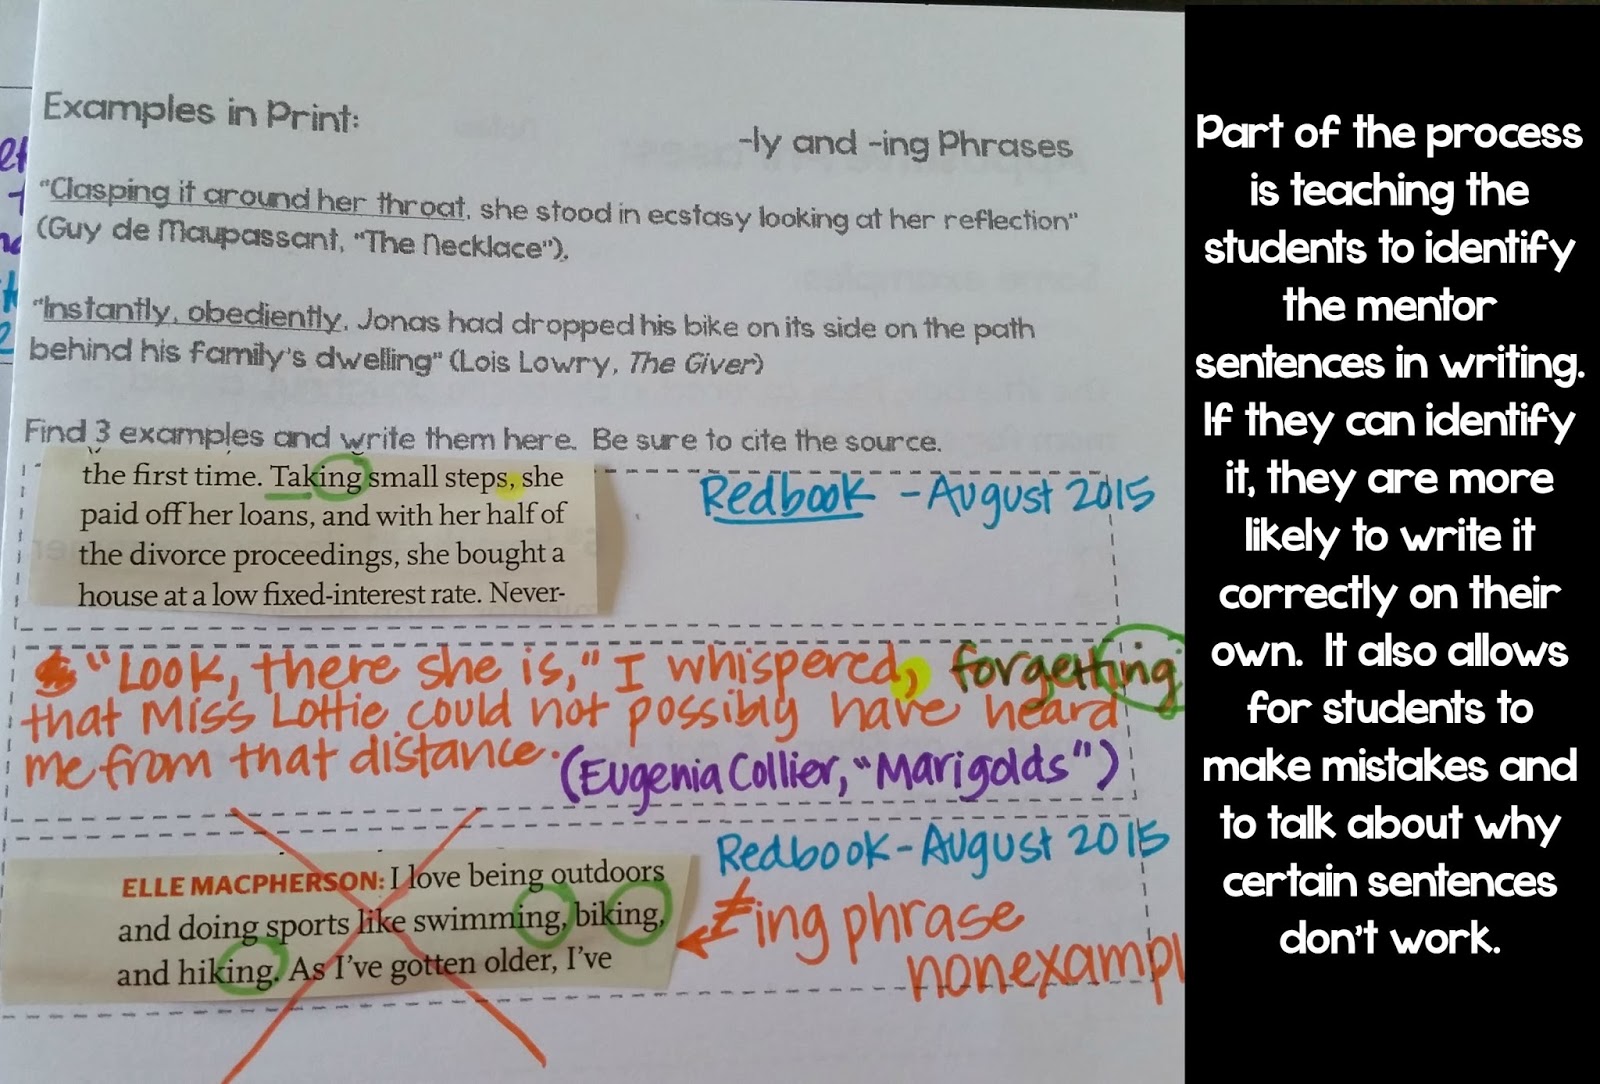 Examples in Print:
-ly and -ing Phrases
"Clasping it around her throat, she stood in ecstasy looking at her reflection"
(Guy de Maupassant, "The Necklace").
"Instantly, obediently, Jonas had dropped his bike on its side on the path
behind his family's dwelling" (Lois Lowry, The Giver)
Find 3 examples and write them here. Be sure to cite the source.
the first time. Taking small steps, she
paid off her loans, and with her half of
the divorce proceedings, she bought a
house at a low fixed-interest rate. Never-
Redbook - August 2015
"Look, there she is," I whispered, forgetting
that Miss Lottie could not possibly have heard
me from that distance.
(Eugenia Collier, "Marigolds")
ELLE MACPHERSON: I love being outdoors
and doing sports like swimming, biking,
and hiking. As I've gotten older, I've
Redbook - August 2015
≠ing phrase
nonexampl
Part of the process
is teaching the
students to identify
the mentor
sentences in writing.
If they can identify
it, they are more
likely to write it
correctly on their
own. It also allows
for students to
make mistakes and
to talk about why
certain sentences
don't work.